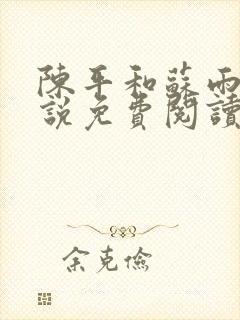 陳平和蘇雨
說免費閱讀
余克儉